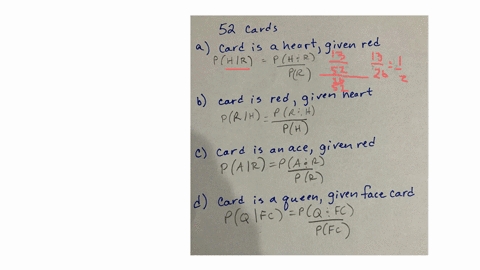 52 cards
a) Card is a heart, given red
P(H/R) = P(H÷R) / P(R) 13/52 13/26 = 1/2
b) card is red, given heart
P(R/H) = P(R÷H) / P(H)
c) Card is an ace, given red
P(A/R) = P(A÷R) / P(R)
d) Card is a queen, given face card
P(Q/FC) = P(Q÷FC) / P(FC)